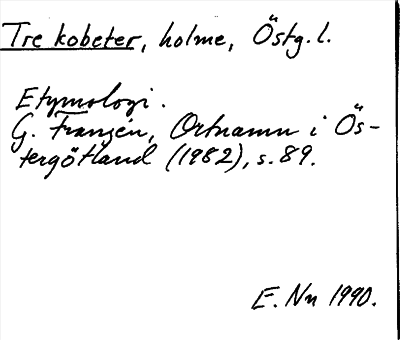 Tre kobeter, holme, Östg. l.
Etymologi.
G. Franzén, Ortnamn i Ös-
tergötland (1982), s. 89.
E. Nn 1990.